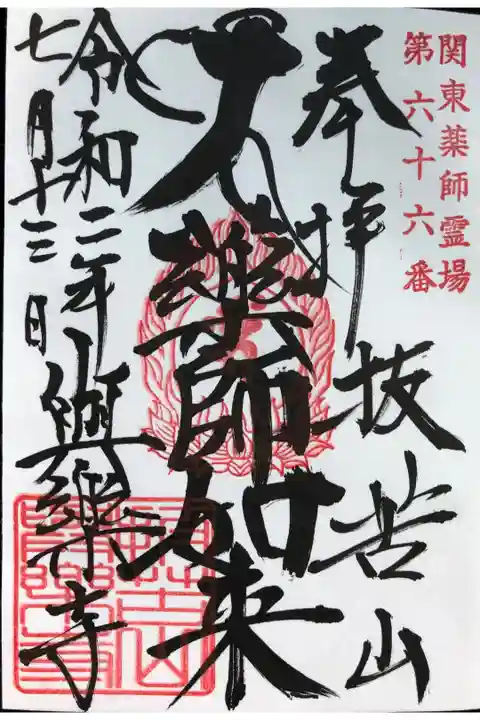 関東薬師霊場
第六十六番
奉拝
抜苦山
薬師如来
令和二年
七月十三日
與楽寺